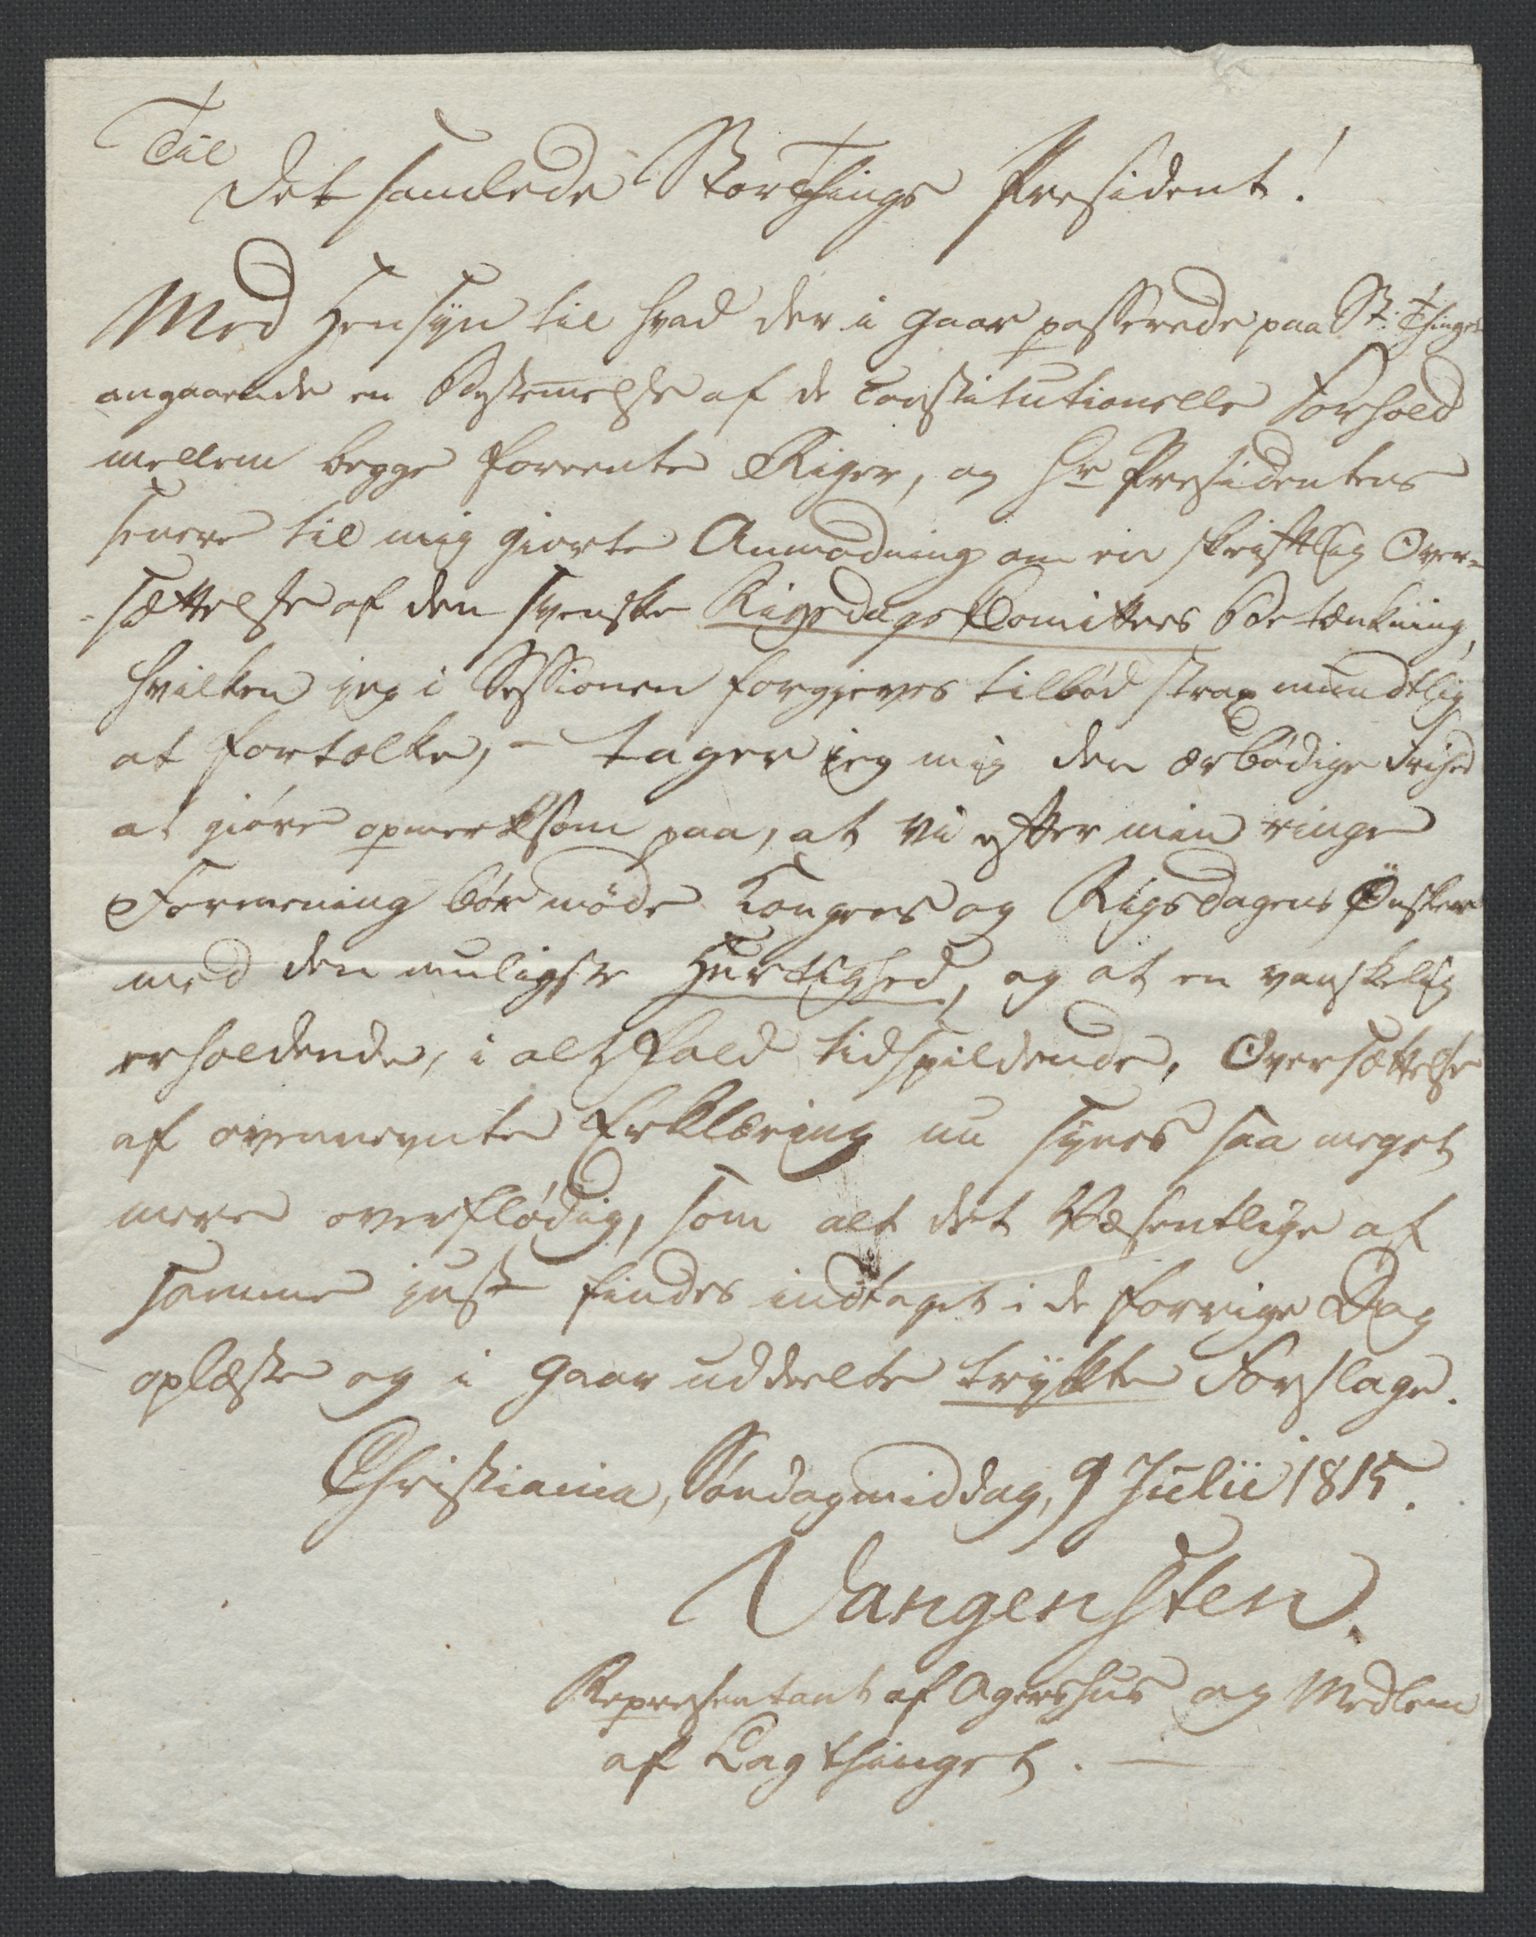 Til
Det samlede Storthings President!
Med Hensÿn til hvad der i Gaar passerede paa St: Thinget
angaaende en Bestemmelse af de Constitutionelle Forhold
mellem begge forrente Riger, og Hr Presidentens
senere til mig giorte Anmodning om en skriftlig Over-
-sættelse af den svenske Rigsdags Comittees Betænkning,
hvilken jeg i Sessionen forgjeves tilbød strax mundtlig
at fortolke, – tager jeg mig den ærbødige Frihed
at giøre opmerksom paa, at vi efter min ringe
Formening bør møde Kongens og Rigsdagens Ønsker
med den muligste Hurtighed, og at en vanskelig
erholdende, i alt Fald tidspildende, Oversættelse
af ovennevnte Erklæring nu synes saa meget
mere overflødig, som alt det Væsentlige af
samme just findes indtaget i de forrige Dag
oplæste og i Gaar uddeelte trykte Forslage.
Christiania, Søndagmiddag, 9 Julii 1815.
Vangensten.
Representant af Agershus og Medlem
af Lagthinget. —